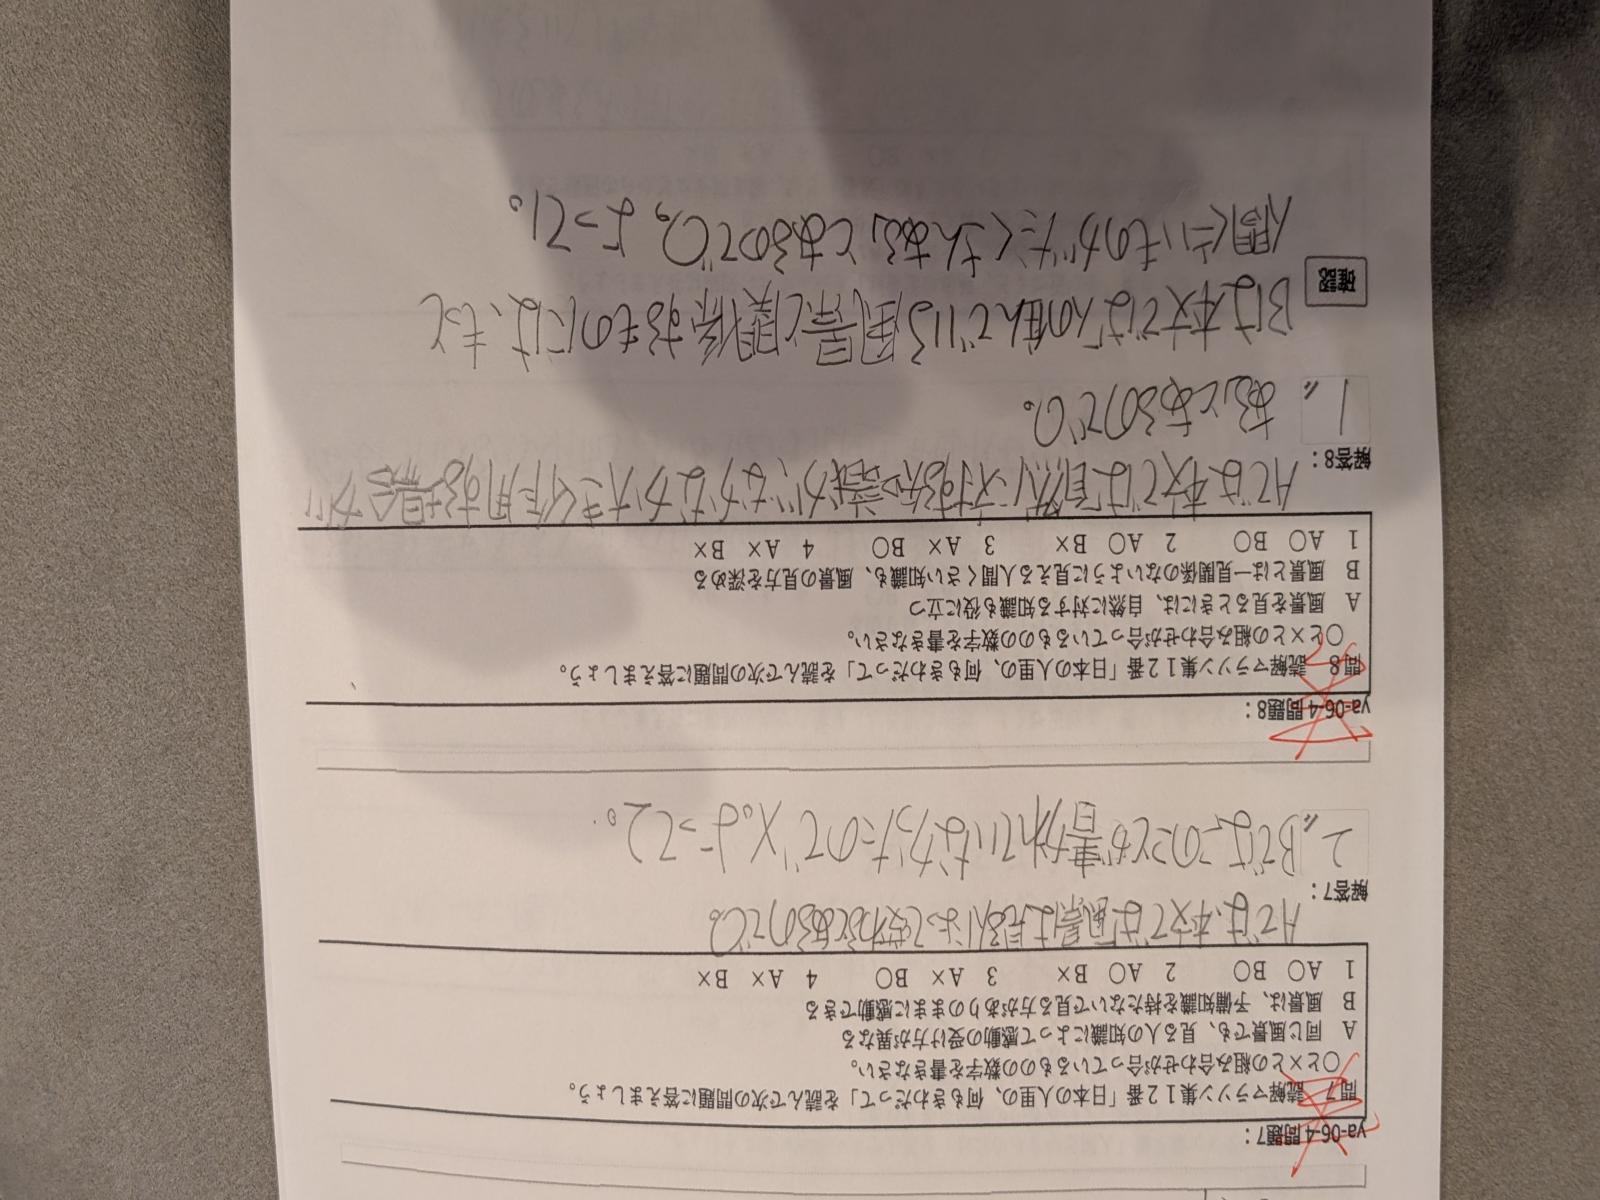 ya-06-4 問題7：
問7　読解マラソン集１２番「日本の人里の、何もきわだって」を読んで次の問題に答えましょう。
○と×との組み合わせが合っているものの数字を書きなさい。
A　同じ風景でも、見る人の知識によって感動の受け方が異なる
B　風景は、予備知識を持たないで見る方がありのままに感動できる
1　A○　B○　　2　A○　B×　　3　A×　B○　　4　A×　B×
Aでは、本文では風景は見る人によって変わるとあるので○。
解答7：
2〃 Bではこのことが書かれていなかったので×。よって2。
ya-06-4 問題8：
問8　読解マラソン集１２番「日本の人里の、何もきわだって」を読んで次の問題に答えましょう。
○と×との組み合わせが合っているものの数字を書きなさい。
A　風景を見るときには、自然に対する知識も役に立つ
B　風景とは一見関係のないように見える人間くさい知識も、風景の見方を深める
1　A○　B○　　2　A○　B×　　3　A×　B○　　4　A×　B×
Aでは本文では自然に対する知識が、なかなか大きく作用する場合が
解答8：
1〃 あるとあるので○。
Bは本文では「人の住んでいる風景と関係するものには、もっと
確認
人間くさいものがたくさんある」とあるので○。よって1。